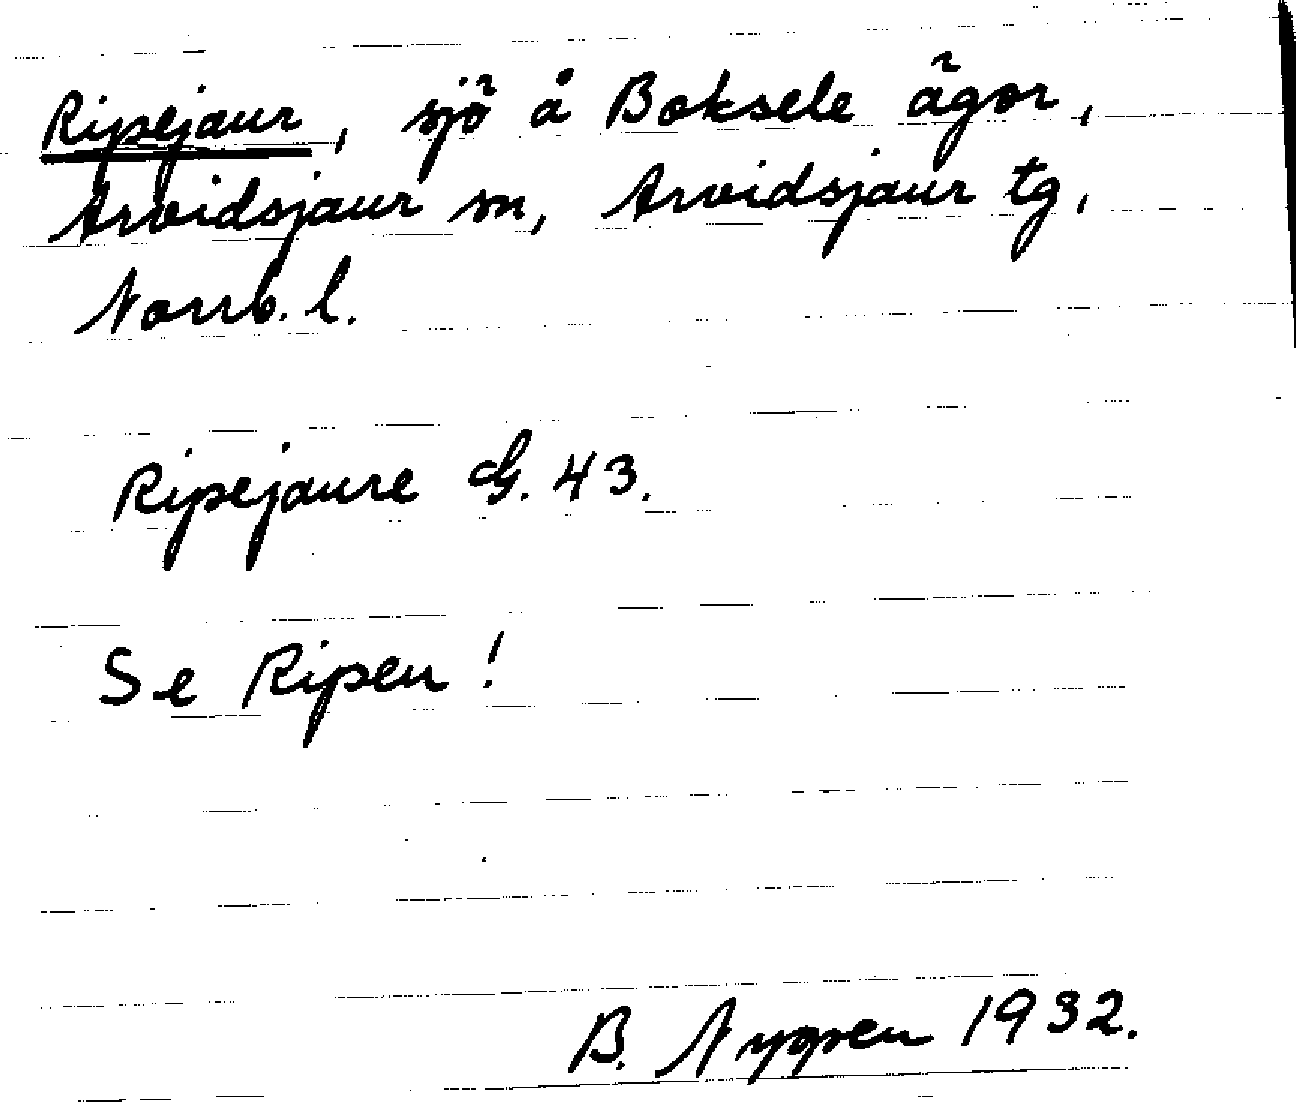 Ripejaur, sjö å Boksele ägor,
Arvidsjaur sn, Arvidsjaur tg,
Norrb. l.
Ripejaure G. 43.
Se Ripen!
B. Nygren 1932.